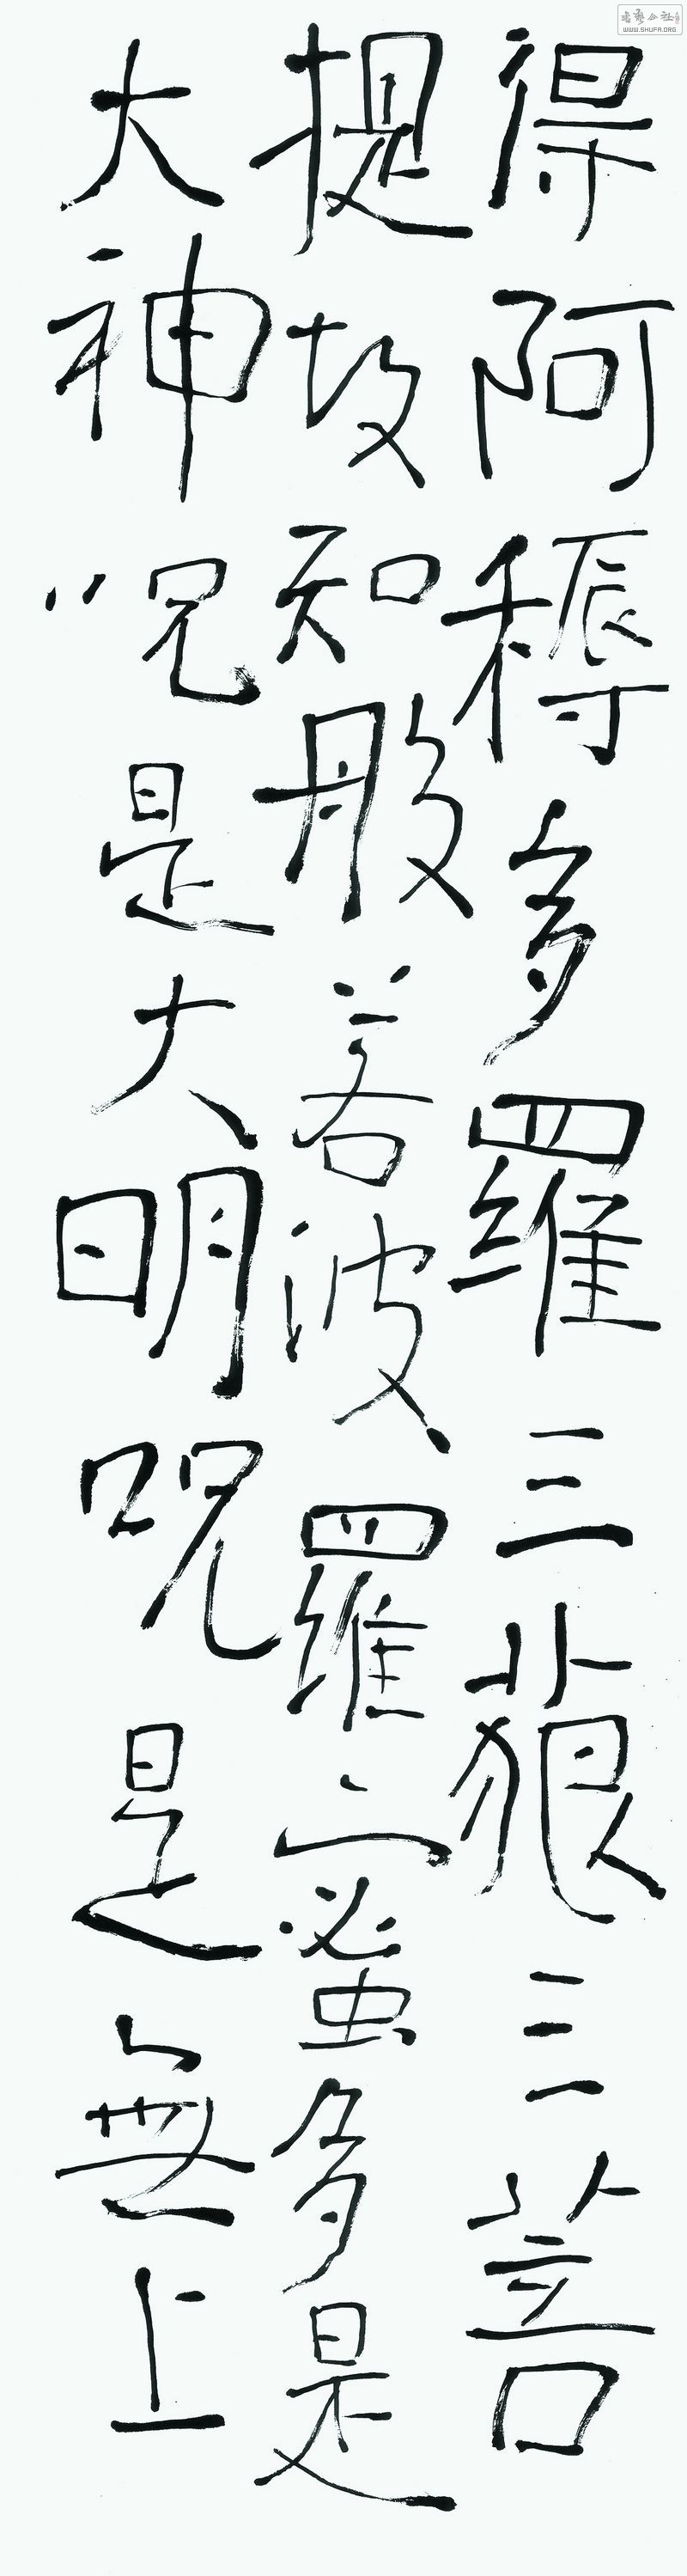 得阿耨多羅三藐三菩
提故知般若波羅蜜多是
大神呪是大明呪是無上
WWW.SHUFA.ORG